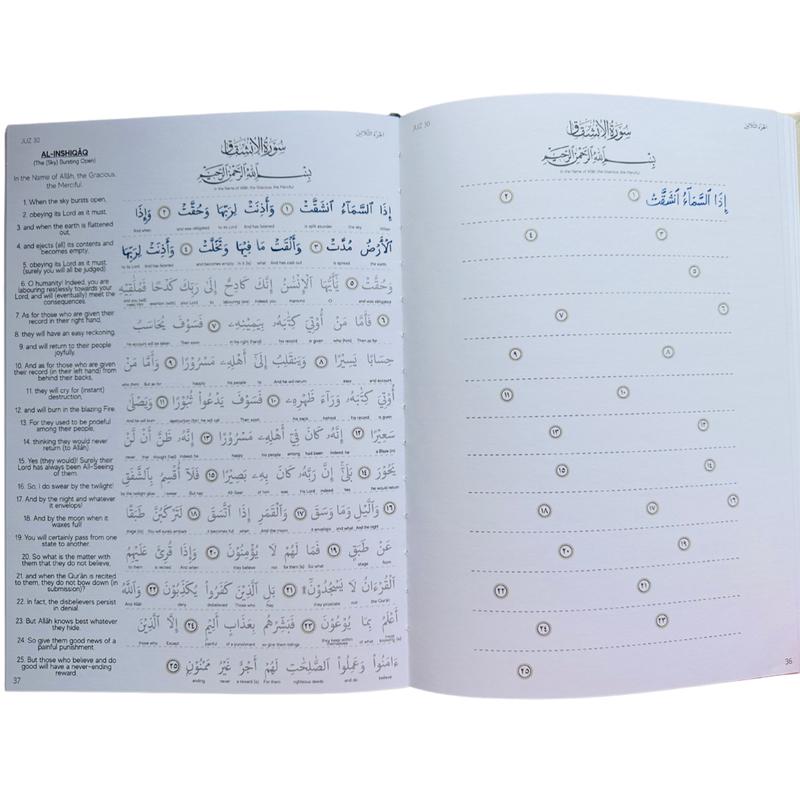 JUZ 30
الجزء الثلاثين
AL-INSHIQĀQ
(The (Sky) Bursting Open)
In the Name of Allāh, the Gracious,
the Merciful.
1. When the sky bursts open,
2. obeying its Lord as it must,
3. and when the earth is flattened
out,
4. and ejects (all) its contents and
becomes empty,
5. obeying its Lord as it must,
(surely you will all be judged)
6. O humanity! Indeed, you are
labouring restlessly towards your
Lord, and will (eventually) meet the
consequences.
7. As for those who are given their
record in their right hand,
8. they will have an easy reckoning,
9. and will return to their people
joyfully.
10. And as for those who are given
their record (in their left hand) from
behind their backs,
11. they will cry for (instant)
destruction,
12. and will burn in the blazing Fire.
13. For they used to be prideful
among their people,
14. thinking they would never
return (to Allāh).
15. Yes (they would)! Surely their
Lord has always been All-Seeing
of them.
16. So, I do swear by the twilight!
17. And by the night and whatever
it envelops!
18. And by the moon when it
waxes full!
19. You will certainly pass from one
state to another.
20. So what is the matter with
them that they do not believe,
21. and when the Qur'ān is recited
to them, they do not bow down (in
submission)?
22. In fact, the disbelievers persist
in denial.
23. But Allāh knows best whatever
they hide.
24. So give them good news of a
painful punishment.
25. But those who believe and do
good will have a never-ending
reward.
37
سورة الانشقاق
بسم الله الرحمن الرحيم
In the Name of Allāh, the Gracious, the Merciful
إِذَا السَّمَآءُ انشَقَّتْ ١ وَأَذِنَتْ لِرَبِّهَا وَحُقَّتْ ٢ وَإِذَا
And when and was obligated to its Lord And has listened is split asunder the sky When
الْأَرْضُ مُدَّتْ ٣ وَأَلْقَتْ مَا فِيهَا وَتَخَلَّتْ ٤ وَأَذِنَتْ لِرَبِّهَا
to its Lord And has listened and becomes empty is in it what And has cast out is spread the earth
وَحُقَّتْ ٥ يَٰٓأَيُّهَا الْإِنسَٰنُ إِنَّكَ كَادِحٌ إِلَىٰ رَبِّكَ كَدْحًا فَمُلَٰقِيهِ
٦ فَأَمَّا مَنْ أُوتِيَ كِتَٰبَهُۥ بِيَمِينِهِۦ ٧ فَسَوْفَ يُحَاسَبُ
حِسَابًا يَسِيرًا ٨ وَيَنقَلِبُ إِلَىٰٓ أَهْلِهِۦ مَسْرُورًا ٩ وَأَمَّا مَنْ
أُوتِيَ كِتَٰبَهُۥ وَرَآءَ ظَهْرِهِۦ ١٠ فَسَوْفَ يَدْعُوا۟ ثُبُورًا ١١ وَيَصْلَىٰ
سَعِيرًا ١٢ إِنَّهُۥ كَانَ فِيٓ أَهْلِهِۦ مَسْرُورًا ١٣ إِنَّهُۥ ظَنَّ أَن لَّن
يَحُورَ ١٤ بَلَىٰٓ إِنَّ رَبَّهُۥ كَانَ بِهِۦ بَصِيرًا ١٥ فَلَآ أُقْسِمُ بِالشَّفَقِ
١٦ وَالَّيْلِ وَمَا وَسَقَ ١٧ وَالْقَمَرِ إِذَا اتَّسَقَ ١٨ لَتَرْكَبُنَّ طَبَقًا
عَن طَبَقٍ ١٩ فَمَا لَهُمْ لَا يُؤْمِنُونَ ٢٠ وَإِذَا قُرِئَ عَلَيْهِمُ
الْقُرْءَانُ لَا يَسْجُدُونَ۩ ٢١ بَلِ الَّذِينَ كَفَرُوا۟ يُكَذِّبُونَ ٢٢ وَاللَّهُ
أَعْلَمُ بِمَا يُوعُونَ ٢٣ فَبَشِّرْهُم بِعَذَابٍ أَلِيمٍ ٢٤ إِلَّا الَّذِينَ
ءَامَنُوا۟ وَعَمِلُوا۟ الصَّٰلِحَٰتِ لَهُمْ أَجْرٌ غَيْرُ مَمْنُونٍ ٢٥
ending never a reward (is) For them righteous deeds and do believe
JUZ 30
الجزء الثلاثين
سورة الانشقاق
بسم الله الرحمن الرحيم
In the Name of Allāh, the Gracious, the Merciful
إِذَا السَّمَآءُ انشَقَّتْ ١ ٢
٣ ٤
٥
٦ ٧
٨ ٩
١٠ ١١
١٢ ١٣
١٤ ١٥
١٦ ١٧ ١٨
١٩ ٢٠
٢١ ٢٢
٢٣ ٢٤
٢٥
36